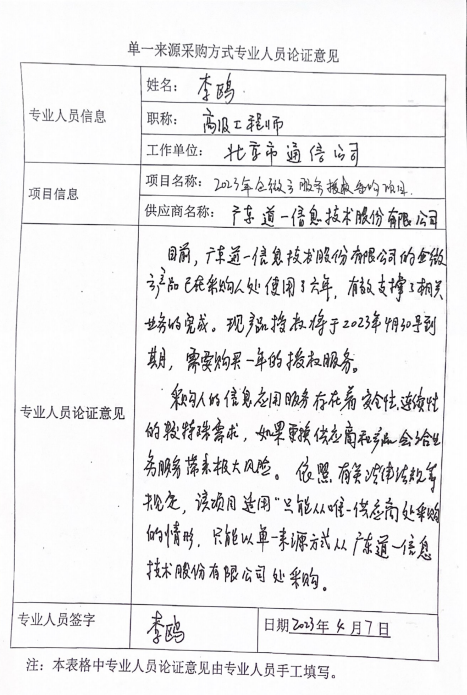 单一来源采购方式专业人员论证意见
专业人员信息
姓名：李鸥
职称：高级工程师
工作单位：北京市通信公司
项目信息
项目名称：2023年企微云服务授权采购项目
供应商名称：广东道一信息技术股份有限公司
专业人员论证意见
目前，广东道一信息技术股份有限公司的企微
云产品已在采购人处使用了六年，有效支撑了相关
业务的完成。现产品授权将于2023年4月30号到
期，需要购买一年的授权服务。
采购人的信息应用服务存在着安全性、连续性
的较特殊需求，如果更换供应商和产品会给业
务服务带来极大风险。依照有关法律法规等
规定，该项目适用“只能从唯一供应商处采购
的情形，只能以单一来源方式从广东道一信息
技术股份有限公司处采购。
专业人员签字
李鸥
日期2023年4月7日
注：本表格中专业人员论证意见由专业人员手工填写。